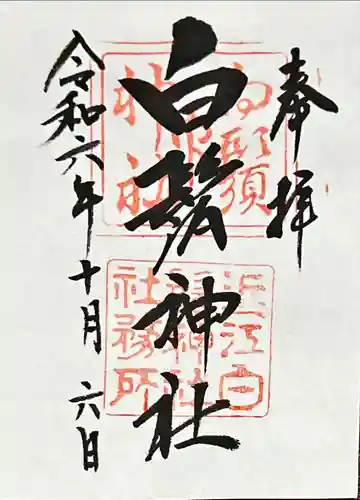 奉拝
白鬚神社
令和六年十月六日
近江白
鬚神社
社務所